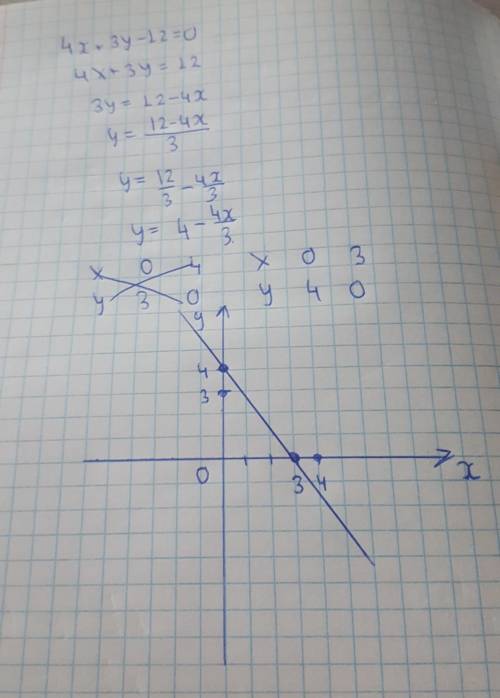 4x+3y-12=0
4x+3y=12
3y=12-4x
y=\frac{12-4x}{3}
y=\frac{12}{3}-\frac{4x}{3}
y=4-\frac{4x}{3}
x 0 4 x 0 3
y 3 0 y 4 0
y
4
3
0 3 4 x